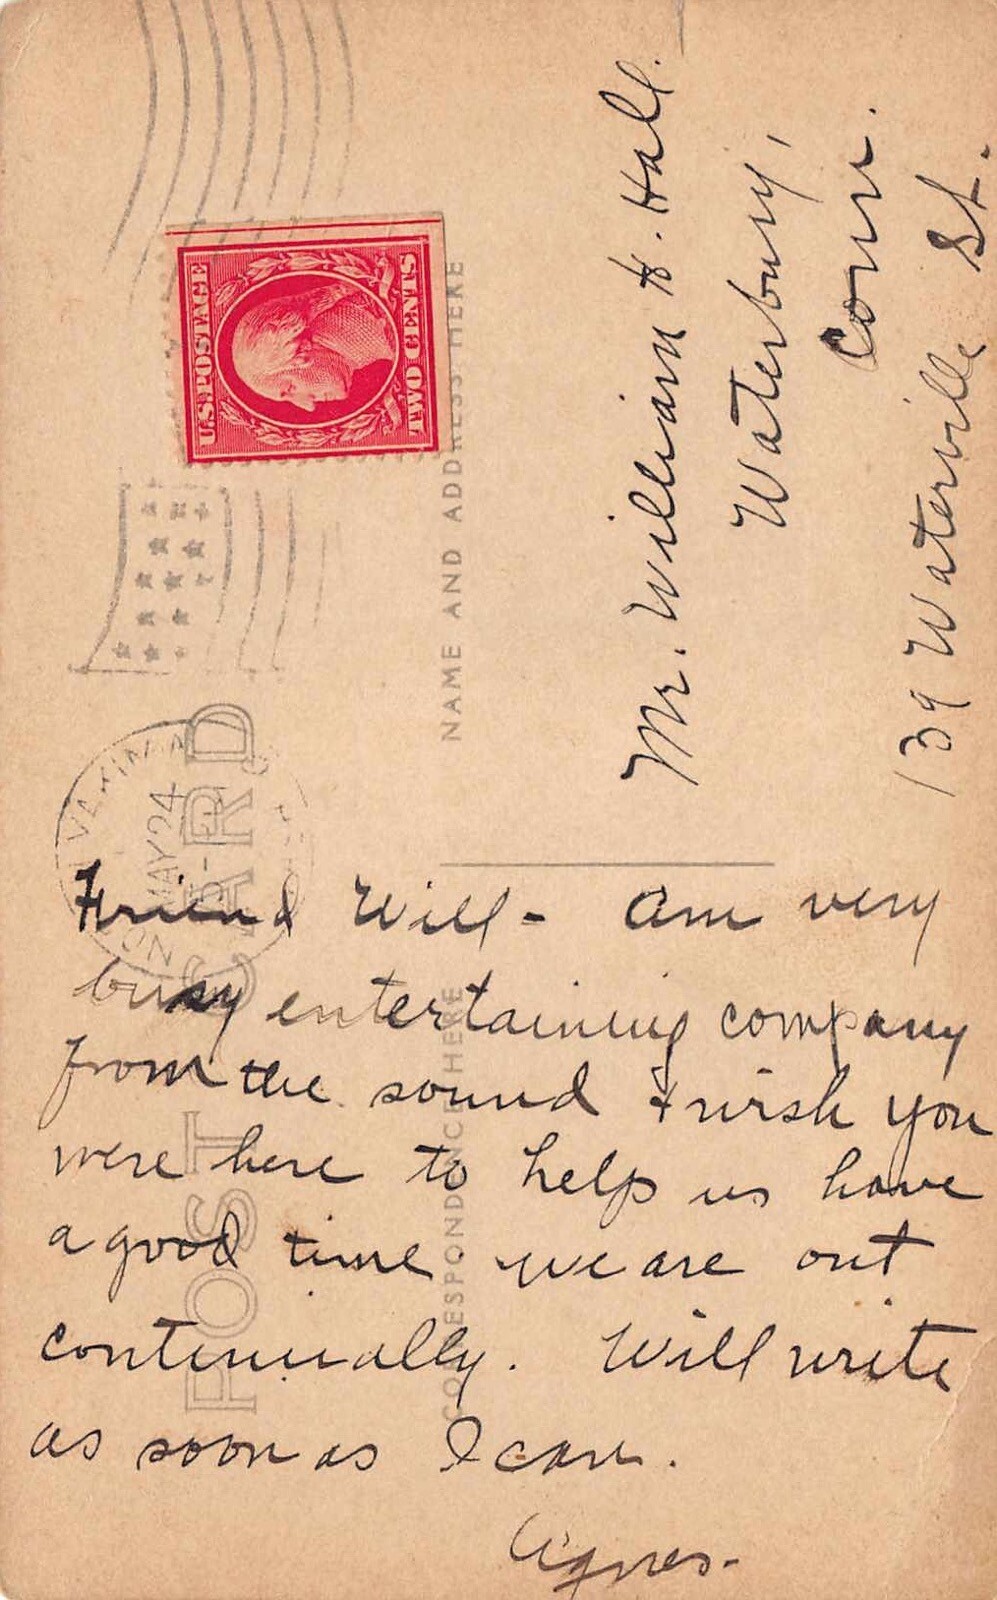 POST CARD
U.S. POSTAGE
TWO CENTS
MAY 24
NAME AND ADDRESS HERE
CORRESPONDENCE HERE
Mr. William H. Hall.
Waterbury,
Conn.
139 Waterville St.
Friend Will - Am very
busy entertaining company
from the sound & wish you
were here to help us have
a good time we are out
continually. Will write
as soon as I can.
Agnes.